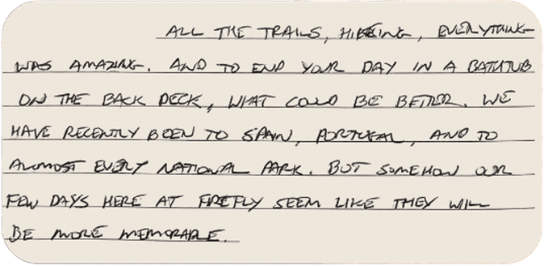 ALL THE TRAILS, HIKING, EVERYTHING
WAS AMAZING. AND TO END YOUR DAY IN A BATHTUB
ON THE BACK DECK, WHAT COULD BE BETTER. WE
HAVE RECENTLY BEEN TO SPAIN, PORTUGAL, AND TO
ALMOST EVERY NATIONAL PARK. BUT SOMEHOW OUR
FEW DAYS HERE AT FIREFLY SEEM LIKE THEY WILL
BE MORE MEMORABLE.